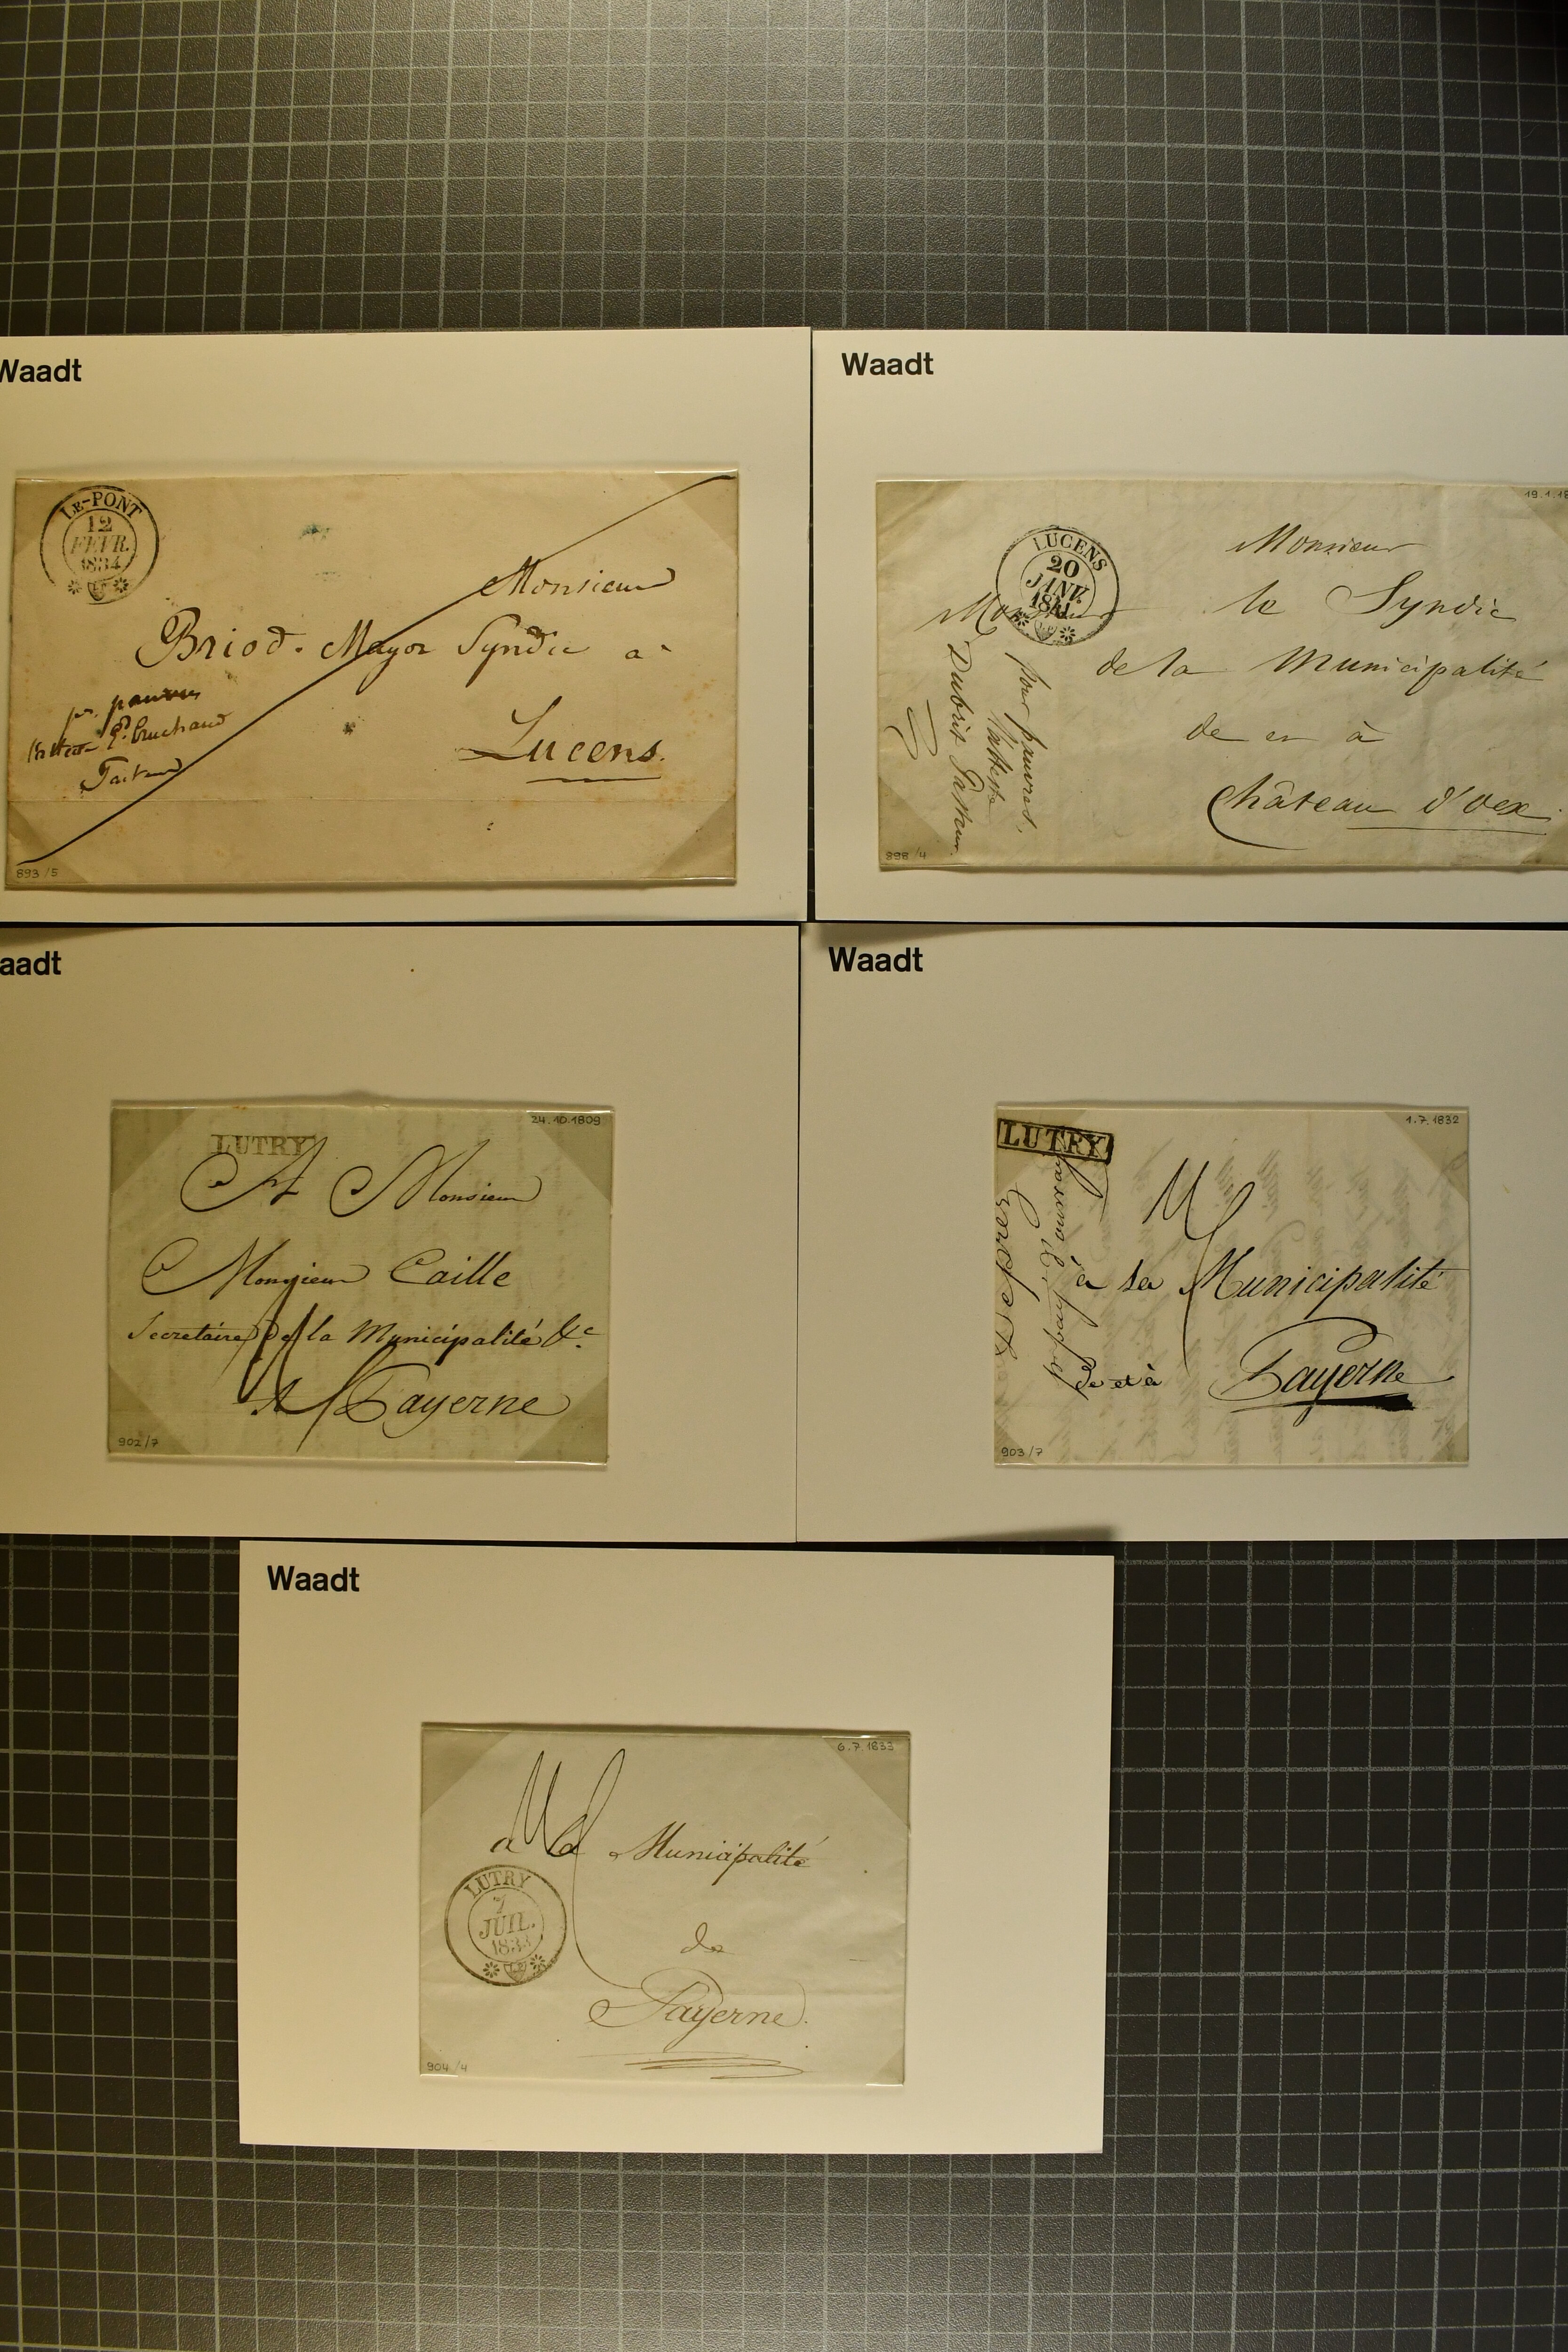 Waadt
LE-PONT
12
FEVR.
1834
Monsieur
Briod. Mayor Syndic a
Lucens.
pr. pauvres
893/5
Waadt
19.1.18
LUCENS
20
JANV.
Monsieur
Monsieur
le Syndic
de la Municipalité
de et à
Château d'Oex.
Pour pauvres,
l'atteste
Dubrit Pasteur.
898/4
aadt
24.10.1809
LUTRY
A Monsieur
Monsieur Caille
Secretaire de la Municipalité &c.
A Payerne
902/7
Waadt
1.7.1832
LUTRY
à la Municipalité
de et à Payerne
903/7
Waadt
6.7.1833
a la Municipalité
LUTRY
7
JUIL.
de
Payerne.
904/4